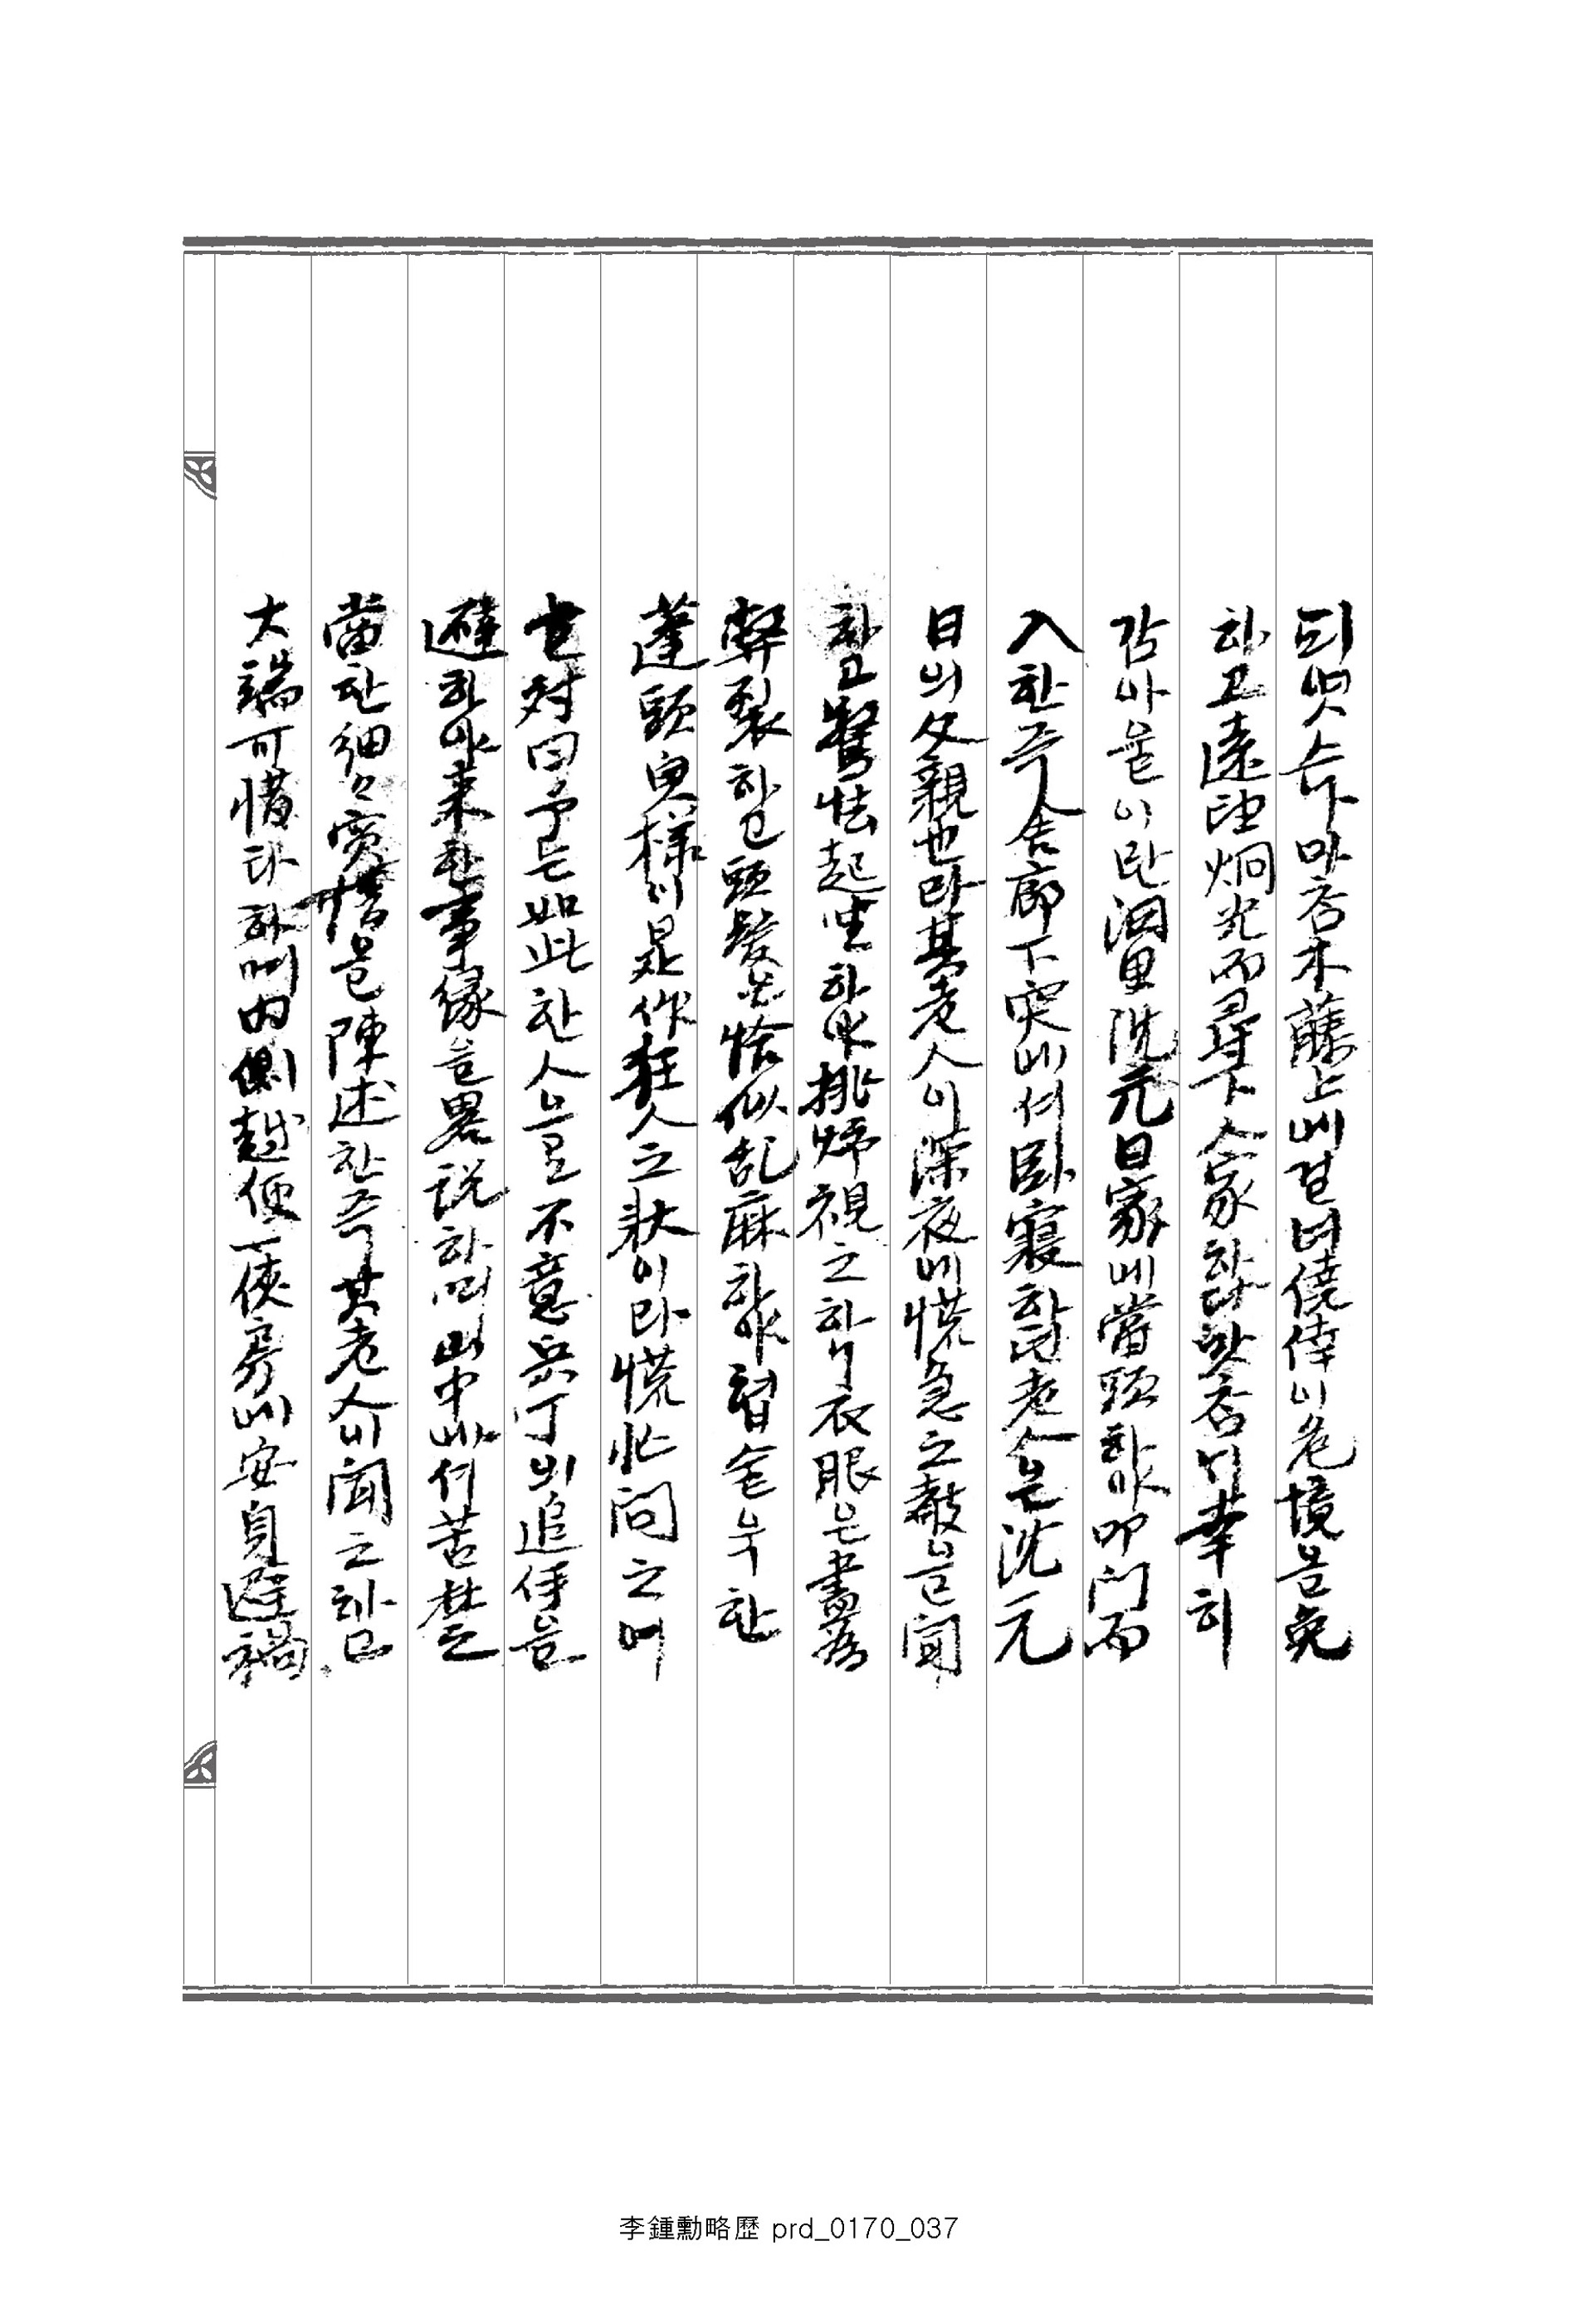 되엿스나 마츰 木藤上에 걸녀 僥倖이 危境을 免
하고 遠望烱光而尋下人家하다 맛츰 내 幸히
감아올이란 洞里 沈元日家에 當頭하야 叩门而
入한즉 舍廊下突에서 卧寢하든 老人은 沈元
日의 父親也라 其老人이 深夜에 慌急之敲을 聞
하고 驚怯起坐하야 挑灯視之하니 衣服은 盡爲
弊裂하고 頭髮은 恰似乱麻하야 숨을 한
蓬頭鬼樣이 是作狂人之狀이라 慌忙問之어
对曰 予는 如此한 人으로 不意 兵丁의 追侤을
避하야 来한 事緣을 畧說하며 山中에서 苦楚
當한 細々 實情을 陳述한즉 其老人이 聞之하고
大端可惜타하며 內側越便一俠房에 安身避禍
李鍾勳略歷 prd_0170_037